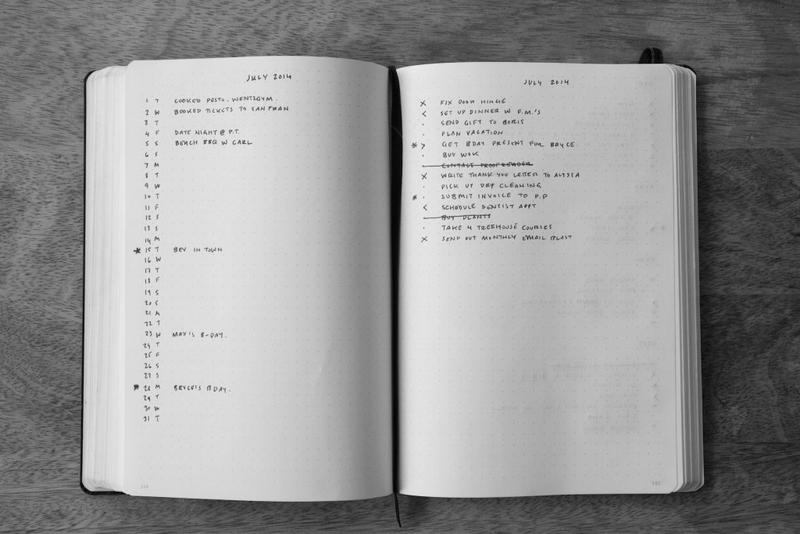 JULY 2014
1 T COOKED PESTO. WENT GYM.
2 W BOOKED TICKETS TO SAN FRAN
3 T
4 F DATE NIGHT @ P.T.
5 S BEACH BBQ W CARL
6 S
7 M
8 T
9 W
10 T
11 F
12 S
13 S
14 M
* 15 T BEV IN TOWN
16 W
17 T
18 F
19 S
20 S
21 M
22 T
23 W MAX'S B-DAY.
24 T
25 F
26 S
27 S
* 28 M BRYCE'S BDAY.
29 T
30 W
31 T
JULY 2014
X FIX DOOR HINGE
< SET UP DINNER W F.M.'S
· SEND GIFT TO BORIS
· PLAN VACATION
* > GET BDAY PRESENT FOR BRYCE
· BUY WOK
· CONTACT PROOFREADER
X WRITE THANK YOU LETTER TO ALYSSA
· PICK UP DRY CLEANING
* · SUBMIT INVOICE TO P.P
< SCHEDULE DENTIST APPT
· BUY PLANTS
· TAKE 4 TREEHOUSE COURSES
X SEND OUT MONTHLY EMAIL BLAST